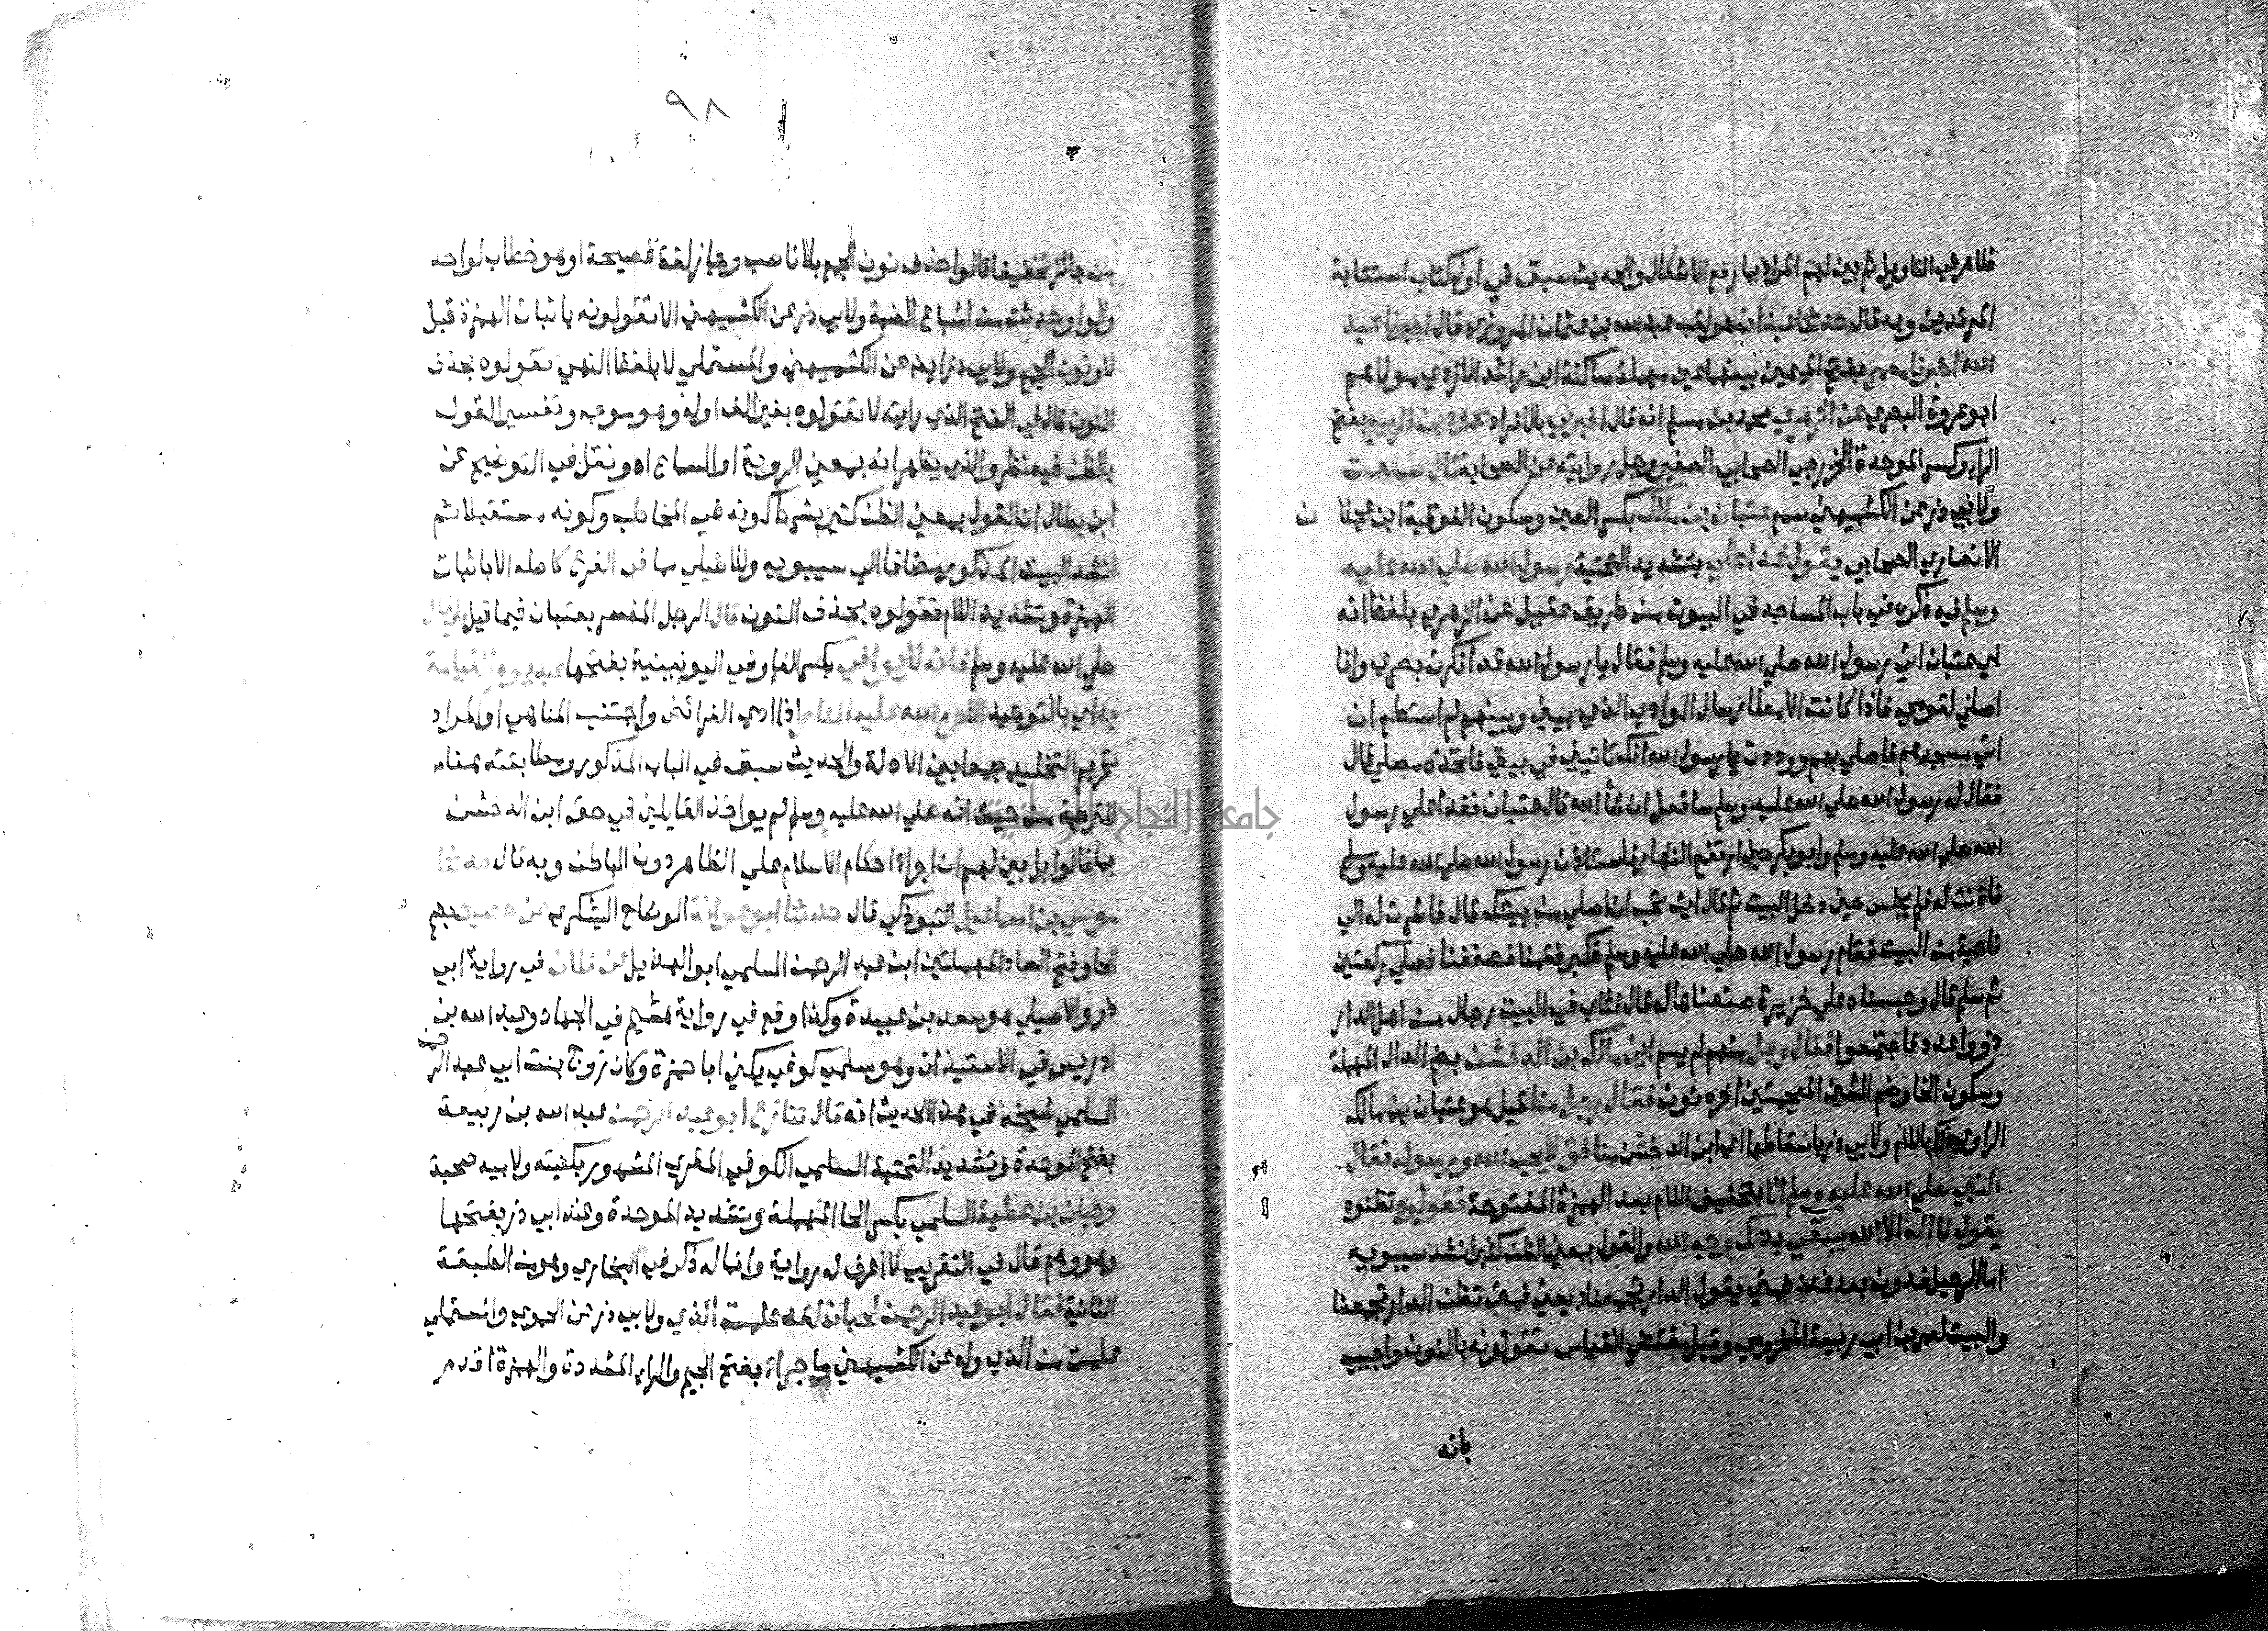 ظاهر في التاويل ثم بين لهم المراد بما رفع الاشكال والحديث سبق في اول كتاب استتابة
المرتدين وبه قال حدثنا عبدان هو لقب عبد الله بن عثمان المروزي قال اخبرنا عبد
الله اخبرنا معمر بفتح الميمين بينهما عين مهملة ساكنة ابن راشد الازدي مولاهم
ابو عروة البصري عن الزهري محمد بن مسلم انه قال اخبرني بالافراد محمود بن الربيع بفتح
الراء وكسر الموحدة الخزرجي الصحابي الصغير وجل روايته عن الصحابة قال سمعت
ولابي ذر عن الكشميهني سمع عتبان بن مالك بكسر العين وسكون الفوقية ابن عجلا ن
الانصاري الصحابي يقول غدا علي بتشديد التحتية رسول الله صلي الله عليه
وسلم فيه ذكره في باب المساجد في البيوت من طريق عقيل عن الزهري بلفظ انه
اي عتبان اتي رسول الله صلي الله عليه وسلم فقال يا رسول الله قد انكرت بصري وانا
اصلي لقومي فاذا كانت الامطار سال الوادي الذي بيني وبينهم لم استطع ان
اتي مسجدهم فاصلي بهم ووددت يا رسول الله انك تاتيني في بيتي فاتخذه مصلي قال
فقال له رسول الله صلي الله عليه وسلم سافعل ان شأ الله قال عتبان فغدا علي رسول
الله صلي الله عليه وسلم وابو بكر حين ارتفع النهار فاستاذن رسول الله صلي الله عليه وسلم
فاذنت له فلم يجلس حين دخل البيت ثم قال اين تحب ان اصلي من بيتك قال فاشرت له الي
ناحية من البيت فقام رسول الله صلي الله عليه وسلم فكبر فقمنا فصففنا فصلي ركعتين
ثم سلم قال وحبسناه علي خزيرة صنعناها له قال فثاب في البيت رجال من اهل الدار
ذووا عدد فاجتمعوا فقال رجل منهم لم يسم اين مالك بن الدخشن بضم الدال المهملة
وسكون الخا وضم الشين المعجمتين اخره نون فقال رجل منا قيل هو عتبان بن مالك
الراوي باللام ولابي ذر باسقاطها اي ابن الدخشن منافق لا يحب الله ورسوله فقال
النبي صلي الله عليه وسلم الا بتخفيف اللام بعد الهمزة المفتوحة تقولوه تظنوه
يقول لا اله الا الله يبتغي بذلك وجه الله والقول بمعني الظن كثير انشد سيبويه
اما الرحيل فدون بعد غد فمتي يقول الدار تجمعنا يعني فمتي تظن الدار تجمعنا
والبيت لعمر بن ابي ربيعة المخزومي وقيل مقتضي القياس تقولونه بالنون واجيب
بانه
٩٨
بانه جائز تخفيفا قالوا حذف نون الجمع بلا ناصب وجازم لغة فصيحة او هو خطاب لواحد
والواو حدثت من اشباع الضمة ولابي ذر عن الكشميهني الا تقولونه باثبات الهمزة قبل
لا ونون الجمع ولابي ذر ايضا عن الكشميهني والمستملي لا بلفظ النهي تقولوه بحذف
النون قال في الفتح الذي رايته لا تقولوه بغير الف اوله وهو موجه وتفسير القول
بالظن فيه نظر والذي يظهر انه بمعني الرؤية او السماع اه ونقل في التوضيح عن
ابن بطال ان القول بمعني الظن كثير بشرط كونه في المخاطب وكونه مستقبلا ثم
انشد البيت المذكور مضافا الي سيبويه وللاصيلي مما في الفرع كاصله الا باثبات
الهمزة وتشديد اللام تقولوه بحذف النون قال الرجل المفسر بعتبان فيما قيل بلي قال
صلي الله عليه وسلم فانه لا يوافي بكسر الفا وفي اليونينية بفتحها عبد يوم القيامة
به اي بالتوحيد الا حرم الله عليه النار اذا ادي الفرائض واجتنب المناهي او المراد
تحريم التخليد جمعا بين الادلة والحديث سبق في الباب المذكور ومطابقته هنا
للترجمة من حيث انه صلي الله عليه وسلم لم يواخذ القايلين في حق ابن الدخشن
بما قالوا بل بين لهم ان اجراء احكام الاسلام علي الظاهر دون الباطن وبه قال حدثنا
موسي بن اسماعيل التبوذكي قال حدثنا ابو عوانة الوضاح اليشكري عن حصين بضم
الحا وفتح الصاد المهملتين ابن عبد الرحمن السلمي ابو الهذيل عن فلان في رواية ابي
ذر والاصيلي هو سعد بن عبيدة وكذا وقع في رواية هشيم في الجهاد وعبد الله بن
ادريس في الاستيذان وهو سلمي كوفي يكني ابا حمزة وكان زوج بنت ابي عبد الرحمن
السلمي شيخه في هذا الحديث انه قال تنازع ابو عبد الرحمن عبد الله بن ربيعة
بفتح الموحدة وتشديد التحتية السلمي الكوفي المقري المشهور بكنيته ولابيه صحبة
وحبان بن عطية السلمي بكسر الحا المهملة وتشديد الموحدة وعند ابي ذر بفتحها
وهو وهم قال في التقريب لا اعرف له رواية وانما له ذكر في البخاري وهو من الطبقة
الثانية فقال ابو عبد الرحمن لحبان لقد علمت الذي ولابي ذر عن الحموي والمستملي
علمت من الذي وله عن الكشميهني ما جراء بفتح الجيم والراء المشددة والهمزة اقدم